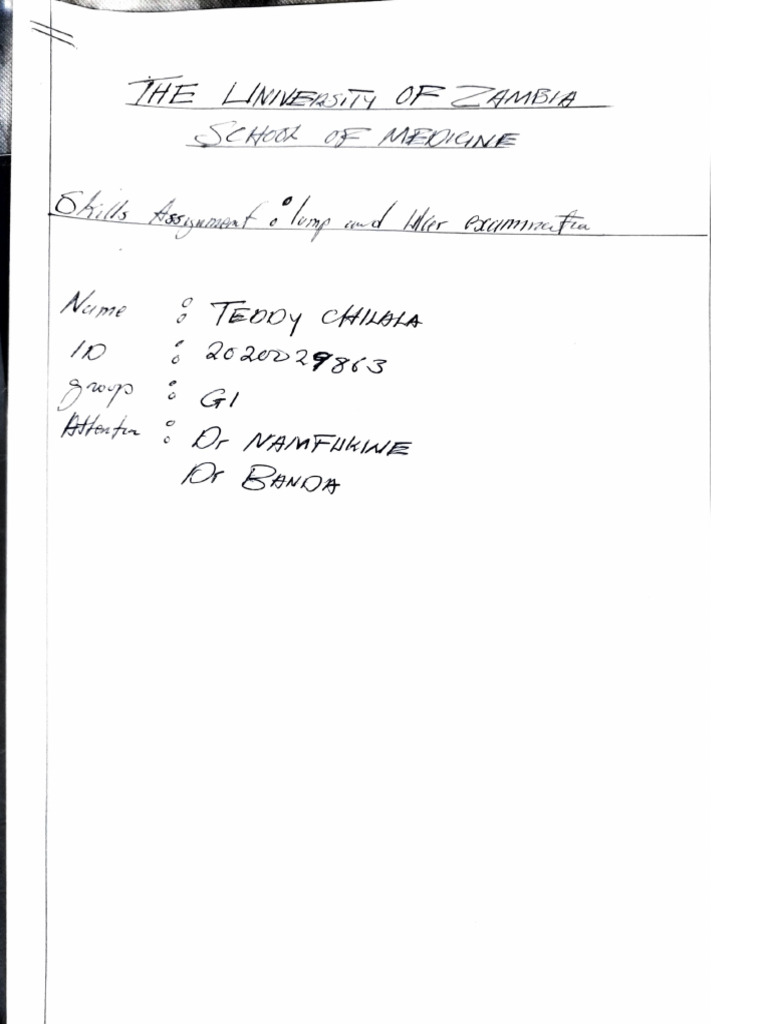 THE UNIVERSITY OF ZAMBIA
SCHOOL OF MEDICINE
Skills Assignment : lump and Ulcer examination
Name : TEDDY CHILALA
ID : 2020029863
group : G1
Attention : Dr NAMFUKWE
Dr BANDA